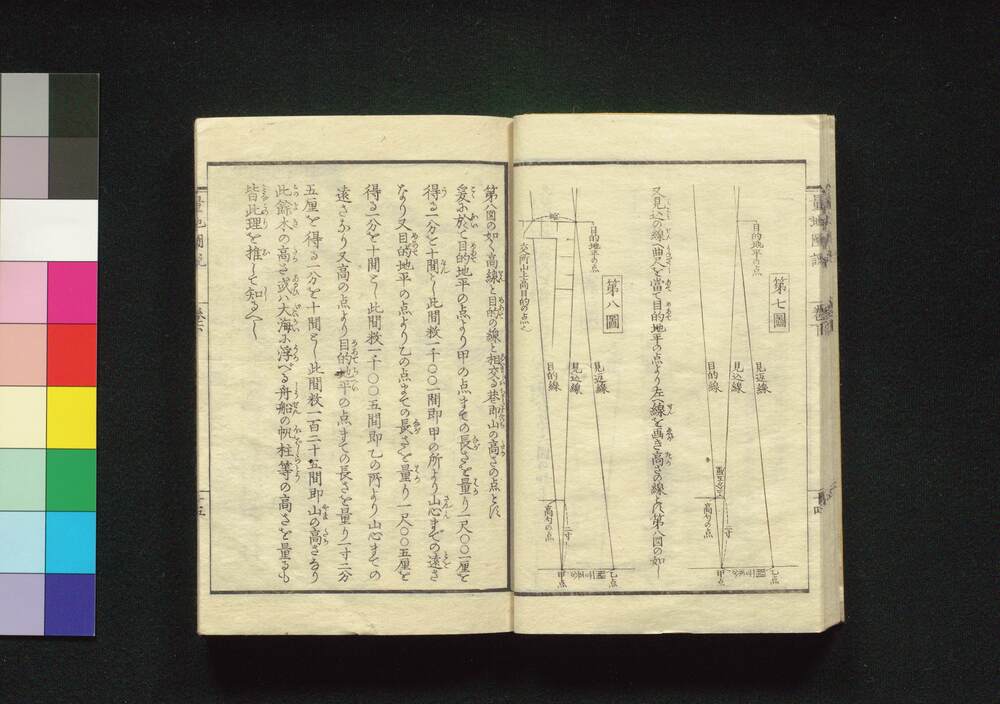 第七圖
目的地平の点
見返線
見込線
目的線
高方の点
一寸
甲点
乙点
又見込の線へ曲尺を當て目的地平の点より左へ線を画き高さの線とス第八図の如し
第八圖
目的地平の点
交所山上高目的の点也
見返線
見込線
目的線
高方の点
一寸
甲点
乙点
第八図の如く高線と目的の線と相交る巷即山の高さの点とス
爰に於て目的地平の点より甲の点までの長さを量り一尺〇〇一厘を
得る一分を十間とし此間数一千〇〇一間即甲の所より山心までの遠さ
なり又目的地平の点より乙の点までの長さを量り一尺〇〇五厘を
得る一分を十間とし此間数一千〇〇五間即乙の所より山心までの
遠さなり又高の点より目的地平の点までの長さを量り一寸二分
五厘を得る一分を十間とし此間数一百二十五間即山の高さなり
此餘木の高さ或ハ大海に浮べる舟船の帆柱等の高さを量るも
皆此理を推して知るべし
量地圖説
十五